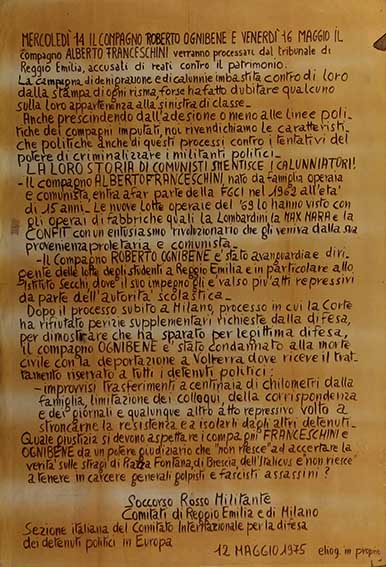 MERCOLEDÍ 14 IL COMPAGNO ROBERTO OGNIBENE E VENERDÍ 16 MAGGIO IL
compagno ALBERTO FRANCESCHINI verranno processati dal tribunale di
Reggio Emilia, accusati di reati contro il patrimonio.
La campagna di denigrazione e di calunnie imbastita contro di loro
dalla stampa di ogni risma, forse ha fatto dubitare qualcuno
sulla loro appartenenza alla sinistra di classe_
Anche prescindendo dall'adesione o meno alle linee poli-
tiche dei compagni imputati, noi rivendichiamo le caratteristi-
che politiche anche di questi processi contro i tentativi del
potere di criminalizzare i militanti politici_
LA LORO STORIA DI COMUNISTI SMENTISCE I CALUNNIATORI!
- Il compagno ALBERTO FRANCESCHINI, nato da famiglia operaia
e comunista, entra a far parte della FGCI nel 1962 all'età
di 15 anni_ Le nuove Lotte operaie del '69 lo hanno visto con
gli operai di fabbriche quali la Lombardini, la MAX MARA e la
CONFIT con un entusiasmo rivoluzionario che gli veniva dalla sua
provenienza proletaria e comunista_
- Il Compagno ROBERTO OGNIBENE è stato avanguardia e diri-
gente delle lotte degli studenti a Reggio Emilia e in particolare allo
istituto Secchi, dove il suo impegno gli è valso più atti repressivi
da parte dell'autorità scolastica_
Dopo il processo subito a Milano, processo in cui la Corte
ha rifiutato perizie supplementari richieste dalla difesa,
per dimostrare che ha sparato per legittima difesa,
il compagno OGNIBENE è stato condannato alla morte
civile con la deportazione a Volterra dove riceve il trat-
tamento riservato a tutti i detenuti politici:
- improvvisi trasferimenti a centinaia di chilometri dalla
famiglia, limitazione dei colloqui, della corrispondenza
e dei giornali e qualunque altro atto repressivo volto a
stroncarne la resistenza e a isolarli dagli altri detenuti_
Quale giustizia si devono aspettare i compagni FRANCESCHINI e
OGNIBENE da un potere giudiziario che "non riesce" ad accertare la
verità sulle stragi di Piazza Fontana, di Brescia, dell'Italicus e "non riesce"
a tenere in carcere generali golpisti e fascisti assassini?
Soccorso Rosso Militante
Comitati di Reggio Emilia e di Milano
Sezione italiana del Comitato Internazionale per la difesa
dei detenuti politici in Europa
12 MAGGIO 1975 eliog. in proprio